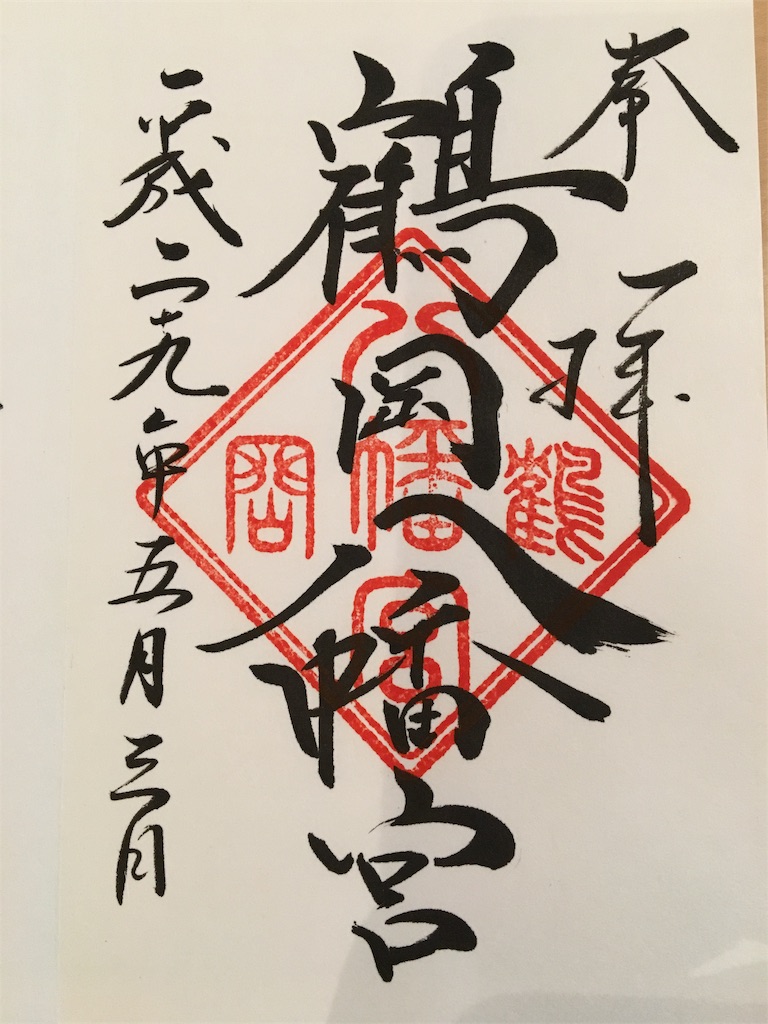 奉拝
鶴岡八幡宮
鶴岡八幡宮
平成二十九年五月三日